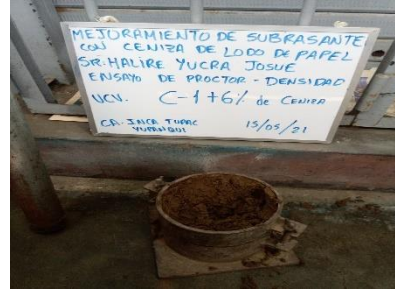 MEJORAMIENTO DE SUBRASANTE
CON CENIZA DE LODO DE PAPEL
SR. HALIRE YUCRA JOSUE
ENSAYO DE PROCTOR - DENSIDAD
UCV. C-1+6% de CENIZA
CA. INCA TUPAC 15/05/21
YUPANQUI